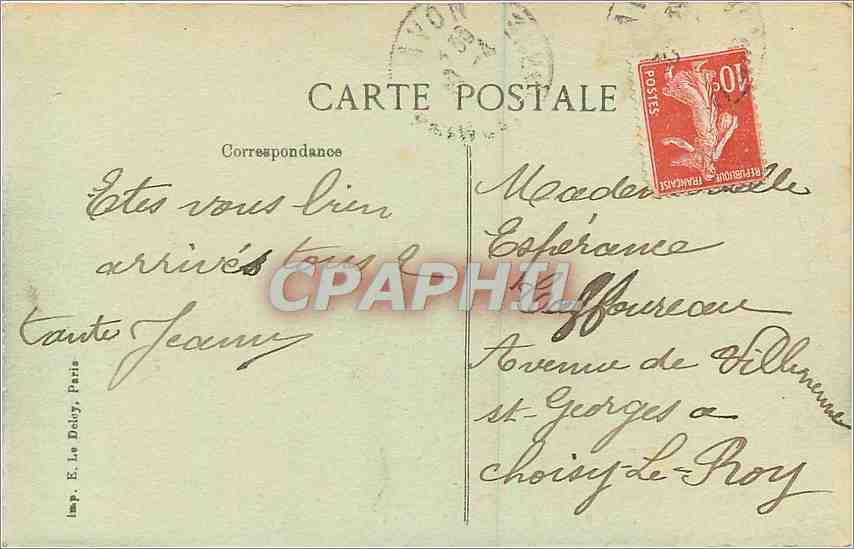 CARTE POSTALE
Correspondance
Etes vous bien
arrivés tous
tante Jeanne
Mademoiselle
Espérance
Avenue de Villeneuve
st-Georges a
choisy-Le-Roy
10 c
POSTES
REPUBLIQUE FRANÇAISE
CPAPHIL
Imp. E. Le Deley, Paris